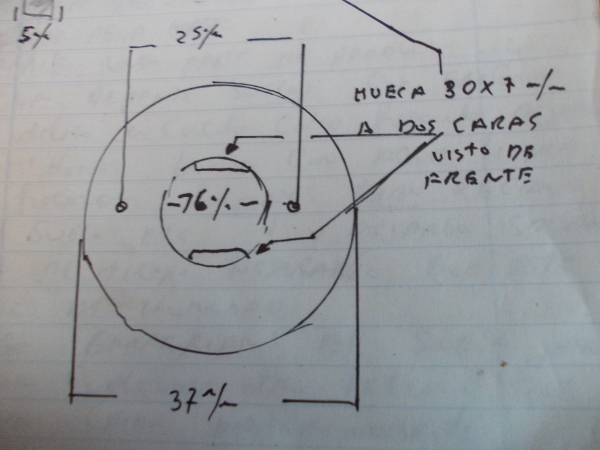 5 m/m
25 m/m
HUECA 30X7 m/m
A DOS CARAS
VISTO DE
FRENTE
-16 m/m-
37 m/m